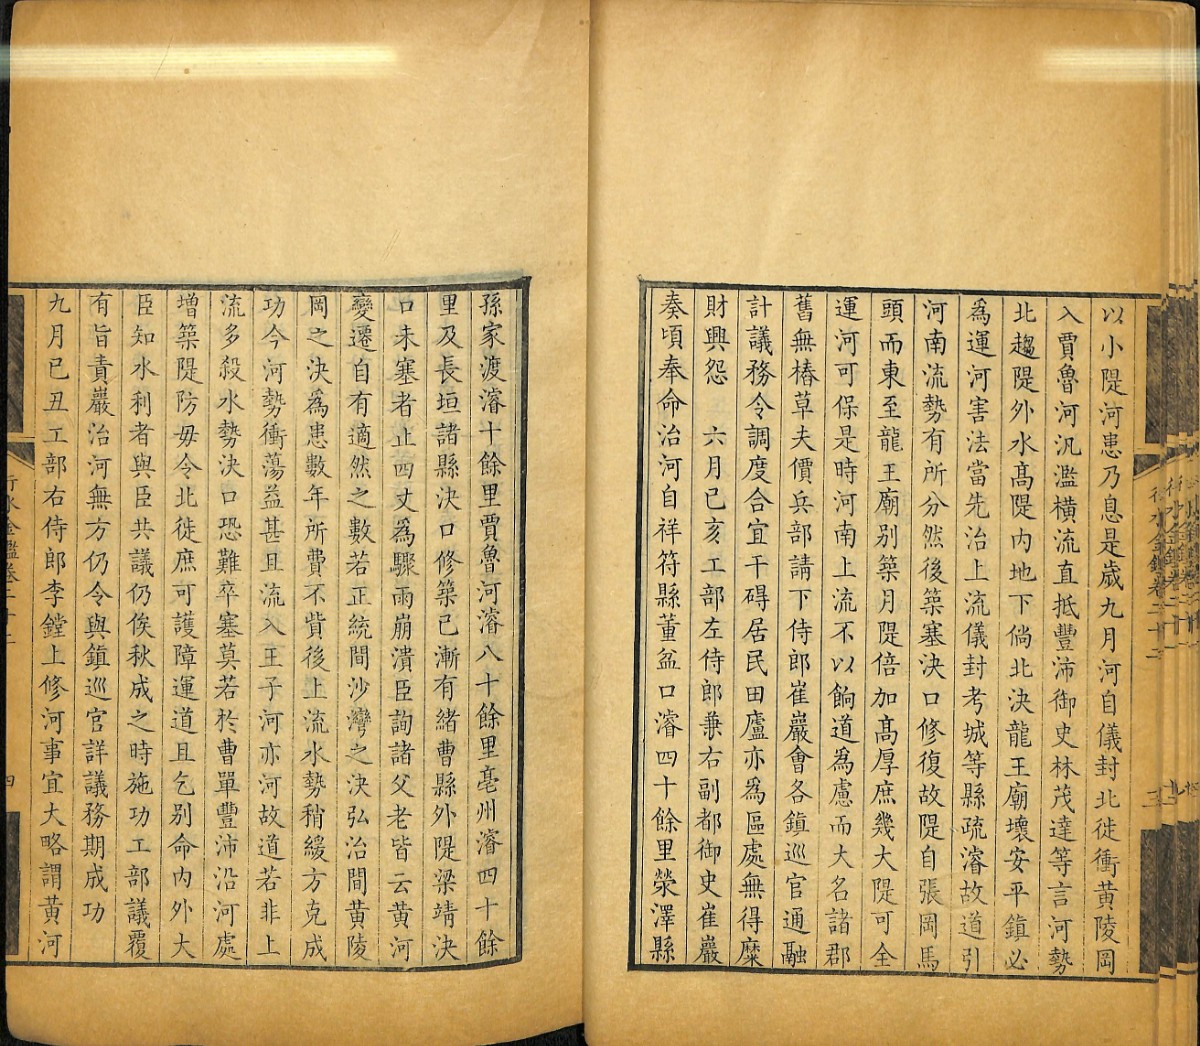 以小隄河患乃息是歲九月河自儀封北徙衝黃陵岡
入賈魯河汎濫橫流直抵豐沛御史林茂達等言河勢
北趨隄外水髙隄内地下倘北決龍王廟壞安平鎮必
爲運河害法當先治上流儀封考城等縣疏濬故道引
河南流勢有所分然後築塞決口修復故隄自張岡馬
頭而東至龍王廟别築月隄倍加髙厚庶幾大隄可全
運河可保是時河南上流不以餉道爲慮而大名諸郡
舊無樁草夫價兵部請下侍郎崔巖會各鎮巡官通融
計議務令調度合宜干碍居民田廬亦爲區處無得糜
財興怨　六月已亥工部左侍郎兼右副都御史崔巖
奏頃奉命治河自祥符縣董盆口濬四十餘里滎澤縣
孫家渡濬十餘里賈魯河濬八十餘里亳州濬四十餘
里及長垣諸縣決口修築已漸有緒曹縣外隄梁靖決
口未塞者止四丈爲驟雨崩潰臣詢諸父老皆云黃河
變遷自有適然之數若正統間沙灣之決弘治間黃陵
岡之決爲患數年所費不貲後上流水勢稍緩方克成
功今河勢衝蕩益甚且流入王子河亦河故道若非上
流多殺水勢決口恐難卒塞莫若於曹單豐沛沿河處
增築隄防毋令北徙庶可護障運道且乞别命内外大
臣知水利者與臣共議仍俟秋成之時施功工部議覆
有旨責巖治河無方仍令與鎮巡官詳議務期成功
九月已丑工部右侍郎李鏜上修河事宜大略謂黃河
行水金鑑卷二十二
四